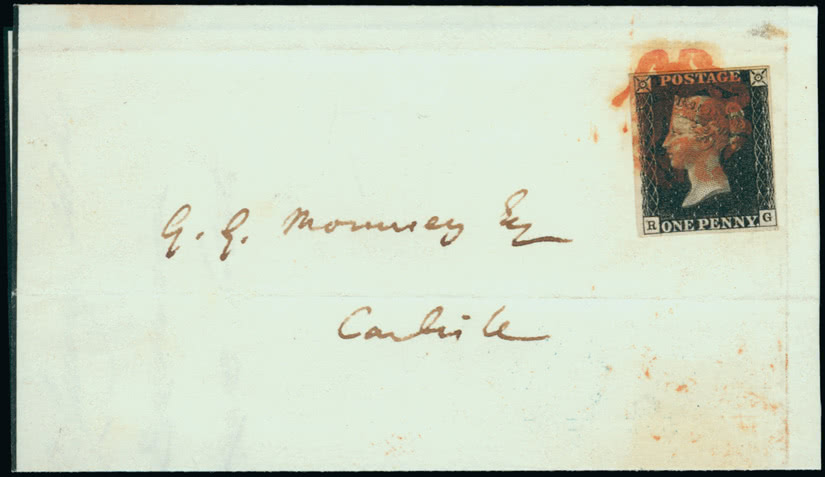 POSTAGE
R ONE PENNY G
G. G. Mounsey Esq
Carlisle